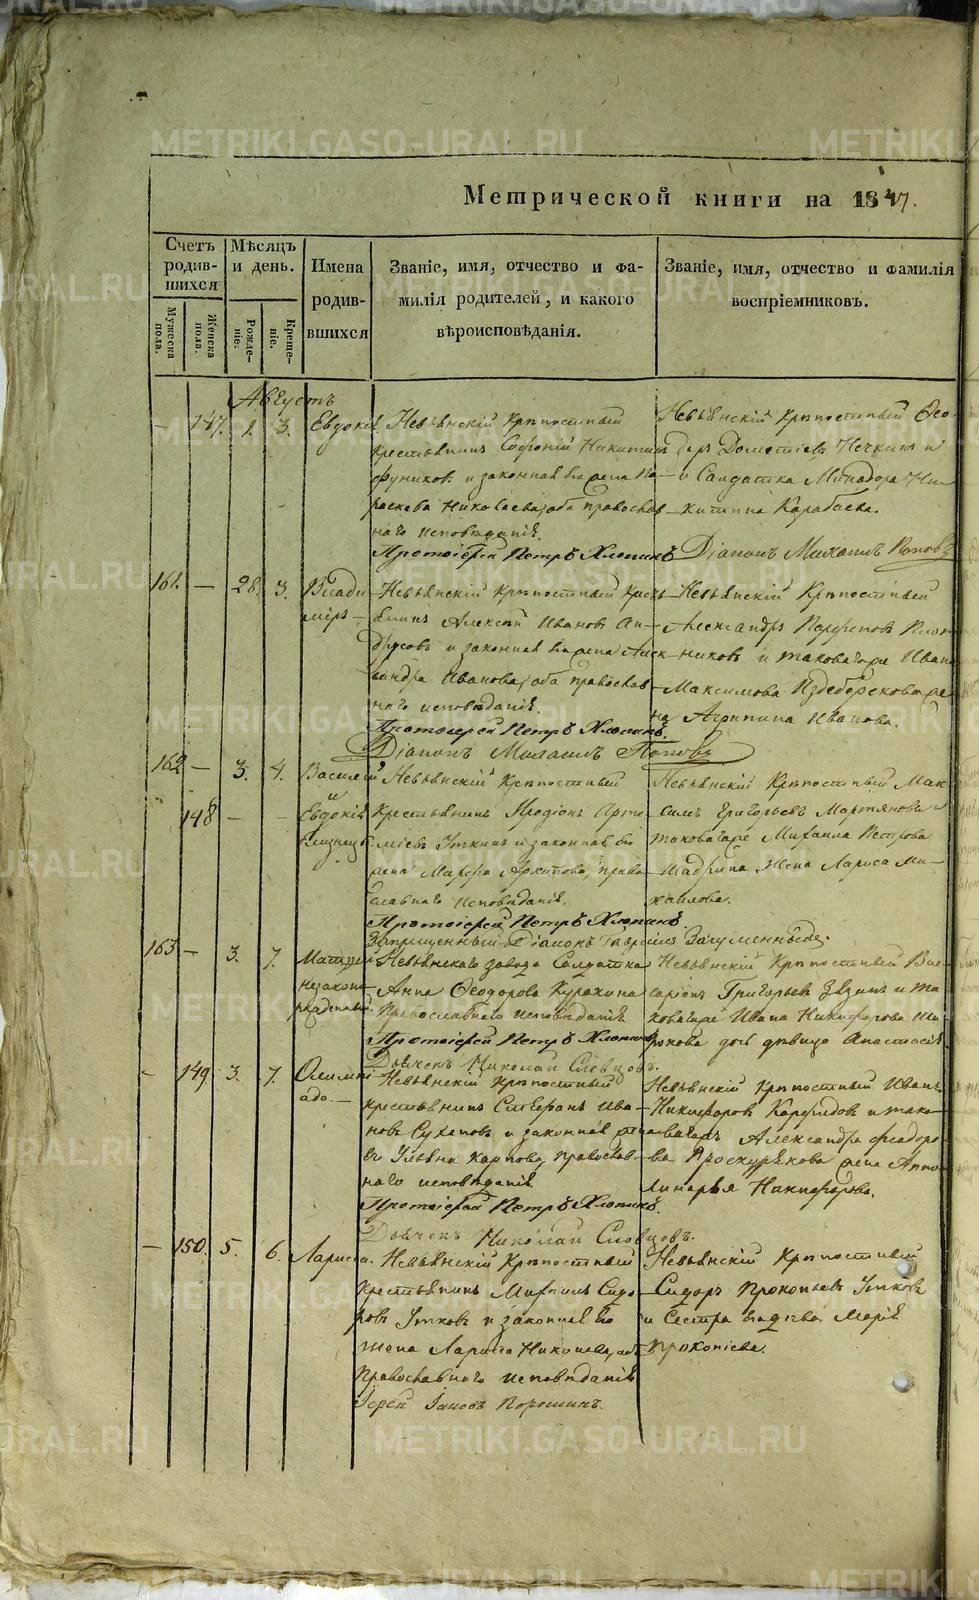 Метрической книги на 1847.
Счетъ родившихся
Мѣсяцъ и день.
Имена родившихся
Званіе, имя, отчество и фамилія родителей, и какого вѣроисповѣданія.
Званіе, имя, отчество и фамилія воспріемниковъ.
Мужеска пола.
Женска пола.
Рожденіе.
Крещеніе.
Августъ
— 147. 1. 3. Евдокія
Невьянскій крѣпостный
крестьянинъ Софроній Никитинъ
и законная его жена Па-
раскева Николаева, оба православ-
наго исповѣданія.
Протоіерей Петръ Хлопинъ
Невьянскій крѣпостный Ѳео-
доръ Дометіевъ и
Салдатка Минадора Ни-
китина Карабаева.
Діаконъ Михаилъ Поповъ
161. — 28. 3. Влади-
міръ
Невьянскій крѣпостный кресть-
янинъ Алексѣй Ивановъ
и законная его жена Алек-
сандра Иванова, оба православ-
наго исповѣданія.
Протоіерей Петръ Хлопинъ.
Діаконъ Михаилъ Поповъ
Невьянскій крѣпостный
Александръ Плот-
никовъ и таковагоже Ивана
Максимова же-
на Агрипина Иванова.
162 — 3. 4. Василій
и
148 — — Евдокія
близнецы
Невьянскій крѣпостный
крестьянинъ Иродіонъ Арте-
міевъ Уткинъ и законная его
жена Марфа Архипова, право-
славнаго исповѣданія.
Протоіерей Петръ Хлопинъ.
Запрещенный Діаконъ Гавріилъ
Невьянскій крѣпостный Мак-
симъ Григорьевъ Мартянова и
таковагоже Михаила Петрова
Шадрина жена Лариса Ми-
хайлова.
163 — 3. 7. Матѳей
незаконно-
рожденный
Невьянскаго завода Салдатка
Анна Ѳеодорова Куракина
Православнаго исповѣданія
Протоіерей Петръ Хлопинъ
Дьячекъ Николай Словцовъ.
Невьянскій крѣпостный
Григорьевъ и та-
ковагоже Ивана Никифорова Ши-
рокова дочь дѣвица Анастасія.
— 149. 3. 7. Олимпі-
ада.
Невьянскій крѣпостный
крестьянинъ Стефанъ Ива-
новъ Сухановъ и законная жена
его Ульяна Карпова, православ-
наго исповѣданія
Протоіерей Петръ Хлопинъ.
Дьячекъ Николай Словцовъ.
Невьянскій крѣпостный Иванъ
Никифоровъ и тако-
вагожъ Александра Ѳеодоро-
ва Проскурякова жена Аппо-
линарья Никифорова.
— 150. 5. 6. Лариса.
Невьянскій крѣпостный
крестьянинъ Михаилъ Сидо-
ровъ Утковъ и законная его
жена Лариса
Православнаго исповѣданія
Іерей Іаковъ Порошинъ.
Невьянскій крѣпостный
Сидоръ Прокопьевъ Утковъ
и Сестра его дѣвица Марія
Прокопіева.
METRIKI.GASO-URAL.RU